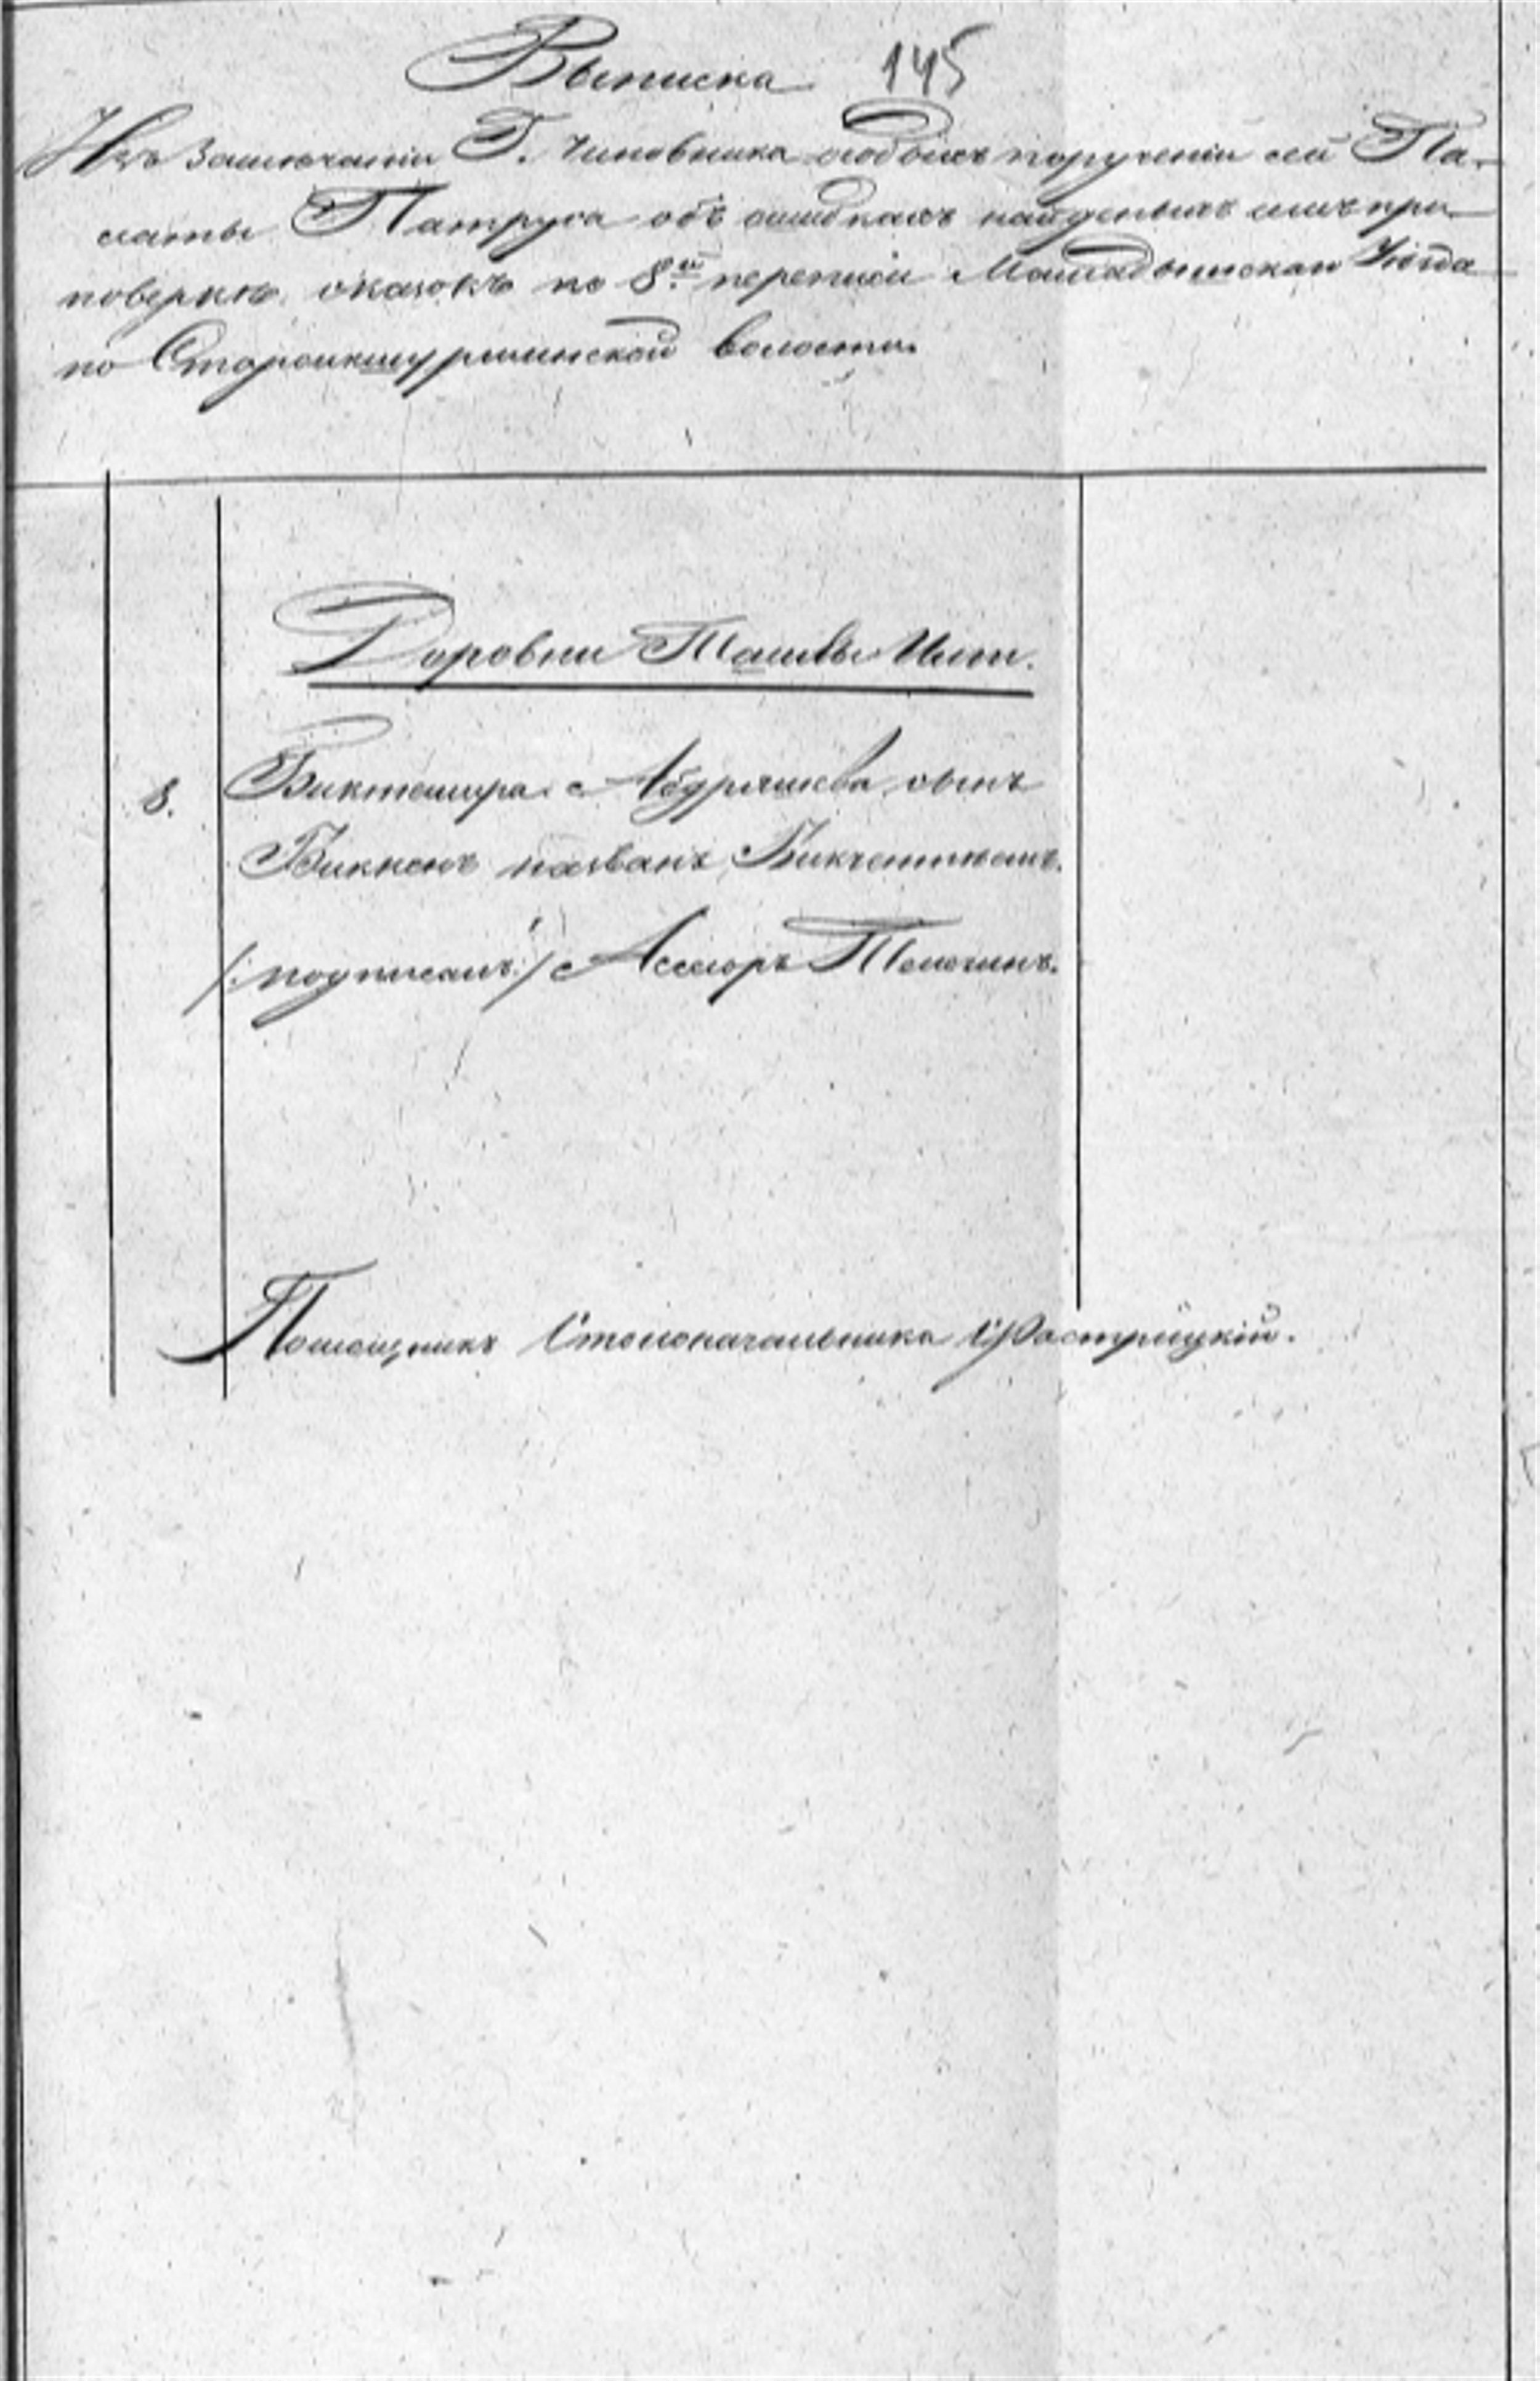 Выписка 145
Изъ Заключенiя Г. Чиновника особыхъ порученiй сей Па-
латы Патруса объ ошибкахъ найденыхъ имъ при
поверкѣ сказокъ по 8й переписи Малмыжскаго Уѣзда
по Староикшурминской волости.
Деровни Ташлы Илги.
8. Биктемира Абдряшева сынъ
Биккенѣ названъ Бикчентѣемъ.
/:подписалъ:/ Асесоръ Телегинъ.
Помощникъ Столоначальника